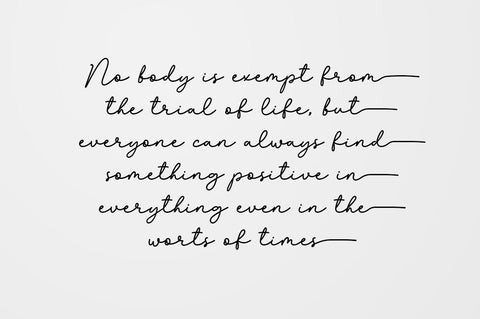 No body is exempt from
the trial of life, but
everyone can always find
something positive in
everything even in the
worts of times